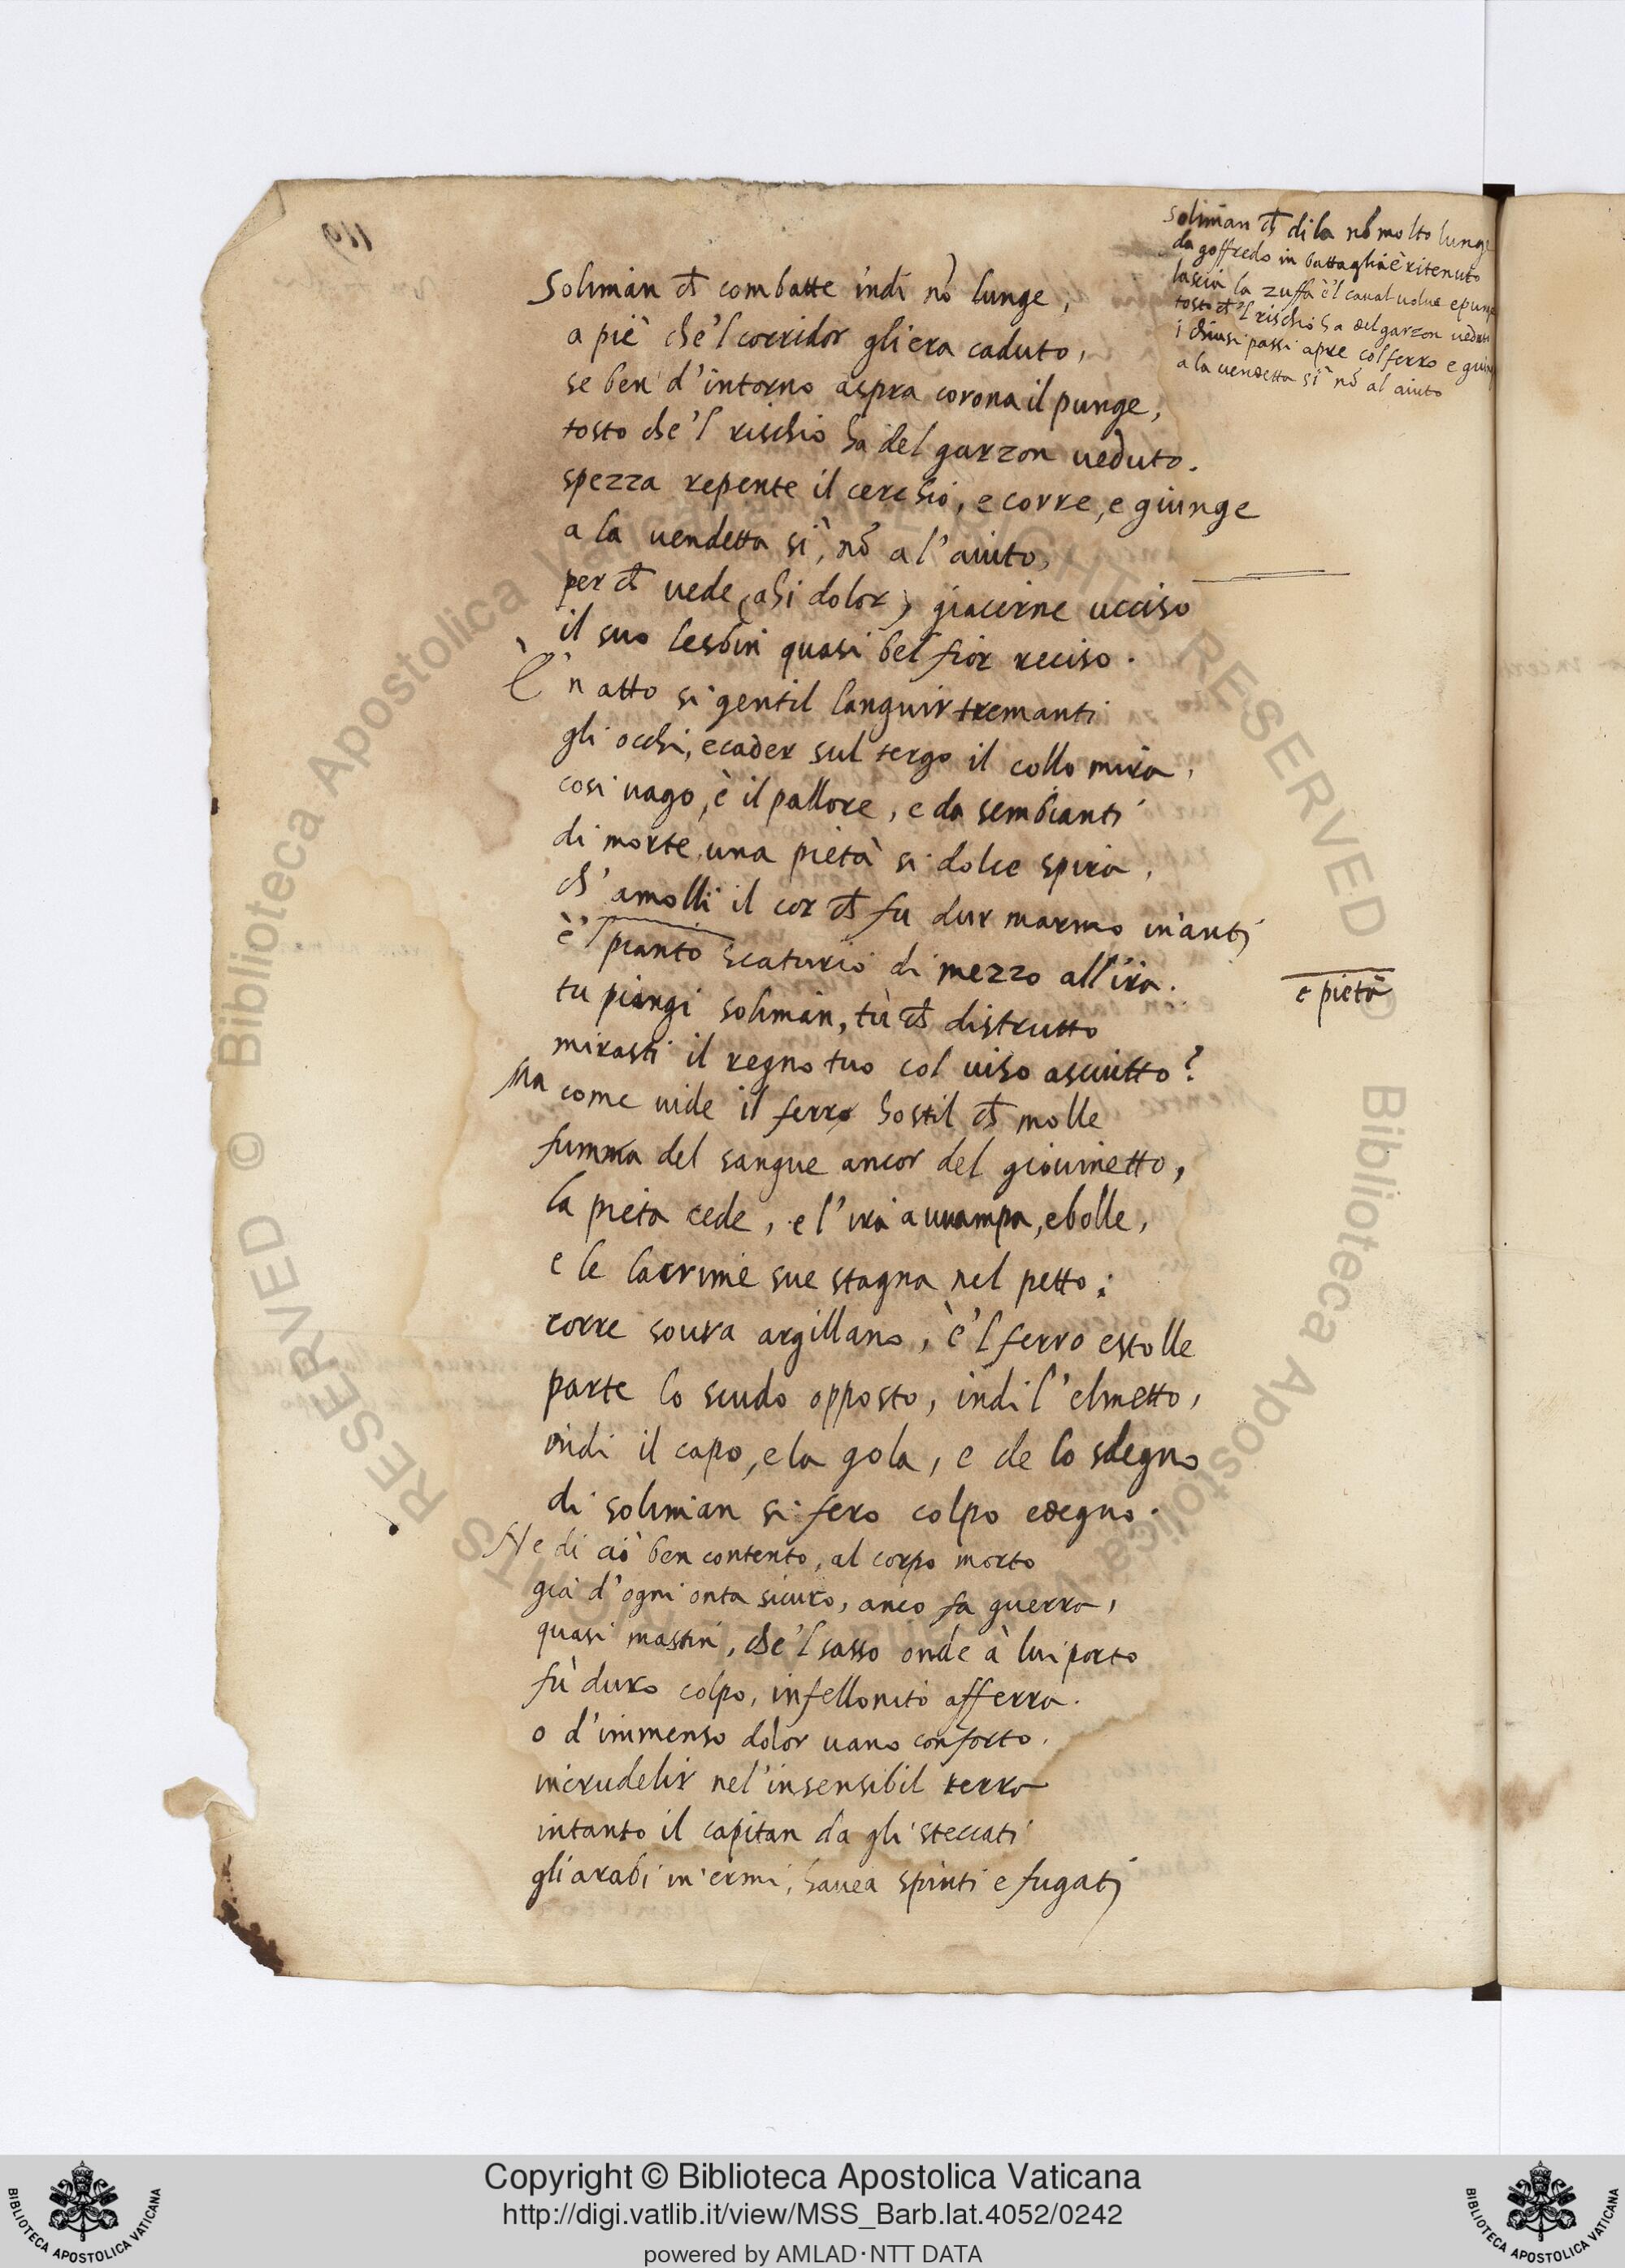 Soliman ch̄ combatte indi nō lunge,
a piè che'l corridor gli era caduto,
se ben d'intorno aspra corona il punge,
tosto che'l rischio ha del garzon ueduto.
spezza repente il cerchio, e corre, e giunge
a la uendetta sì, nō a l'aiuto,
per ch̄ uede, (ahi dolor) giacerne ucciso
il suo lesbin quasi bel fior reciso.
E 'n atto si gentil languir tremanti
gli occhi, e cader sul tergo il collo mira,
cosi uago, è il pallore, e da sembianti
di morte una pietà si dolce spira,
ch' amollì il cor ch̄ fu dur marmo inanti
è'l pianto scaturio di mezzo all'ira.
tu piangi soliman, tù ch̄ distrutto
mirasti il regno tuo col uiso asciutto?
Ma come uide il ferro hostil ch̄ molle
fumma del sangue ancor del giouinetto,
la pieta cede, e l'ira auuampa, e bolle,
e le lacrime sue stagna nel petto:
corre soura argillano, è'l ferro estolle
parte lo scudo opposto, indi l'elmetto,
indi il capo, e la gola, e de lo sdegno
di soliman si fero colpo è degno.
Ne di ciò ben contento, al corpo morto
già d'ogni onta sicuro, anco fa guerra,
quasi mastin, che'l sasso onde à lui porto
fù duro colpo, infellonito afferra.
o d'immenso dolor uano conforto.
incrudelir nel'insensibil terra
intanto il capitan da gli steccati
gli arabi in'ermi, hauea spinti e fugati
soliman ch̄ di la nō molto lunge
da goffredo in battaglia è ritenuto
lascia la zuffa è'l caual uolue e punge
tosto ch̄'l rischio ha del garzon ueduto
i chiusi passi apre col ferro e giunge
a la uendetta sì nō al aiuto
e pietà
119
RESERVED © Biblioteca Apostolica Vaticana
RIGHTS RESERVED © Biblioteca Apostolica Vaticana
Copyright © Biblioteca Apostolica Vaticana
http://digi.vatlib.it/view/MSS_Barb.lat.4052/0242
powered by AMLAD·NTT DATA
BIBLIOTECA APOSTOLICA VATICANA
BIBLIOTECA APOSTOLICA VATICANA